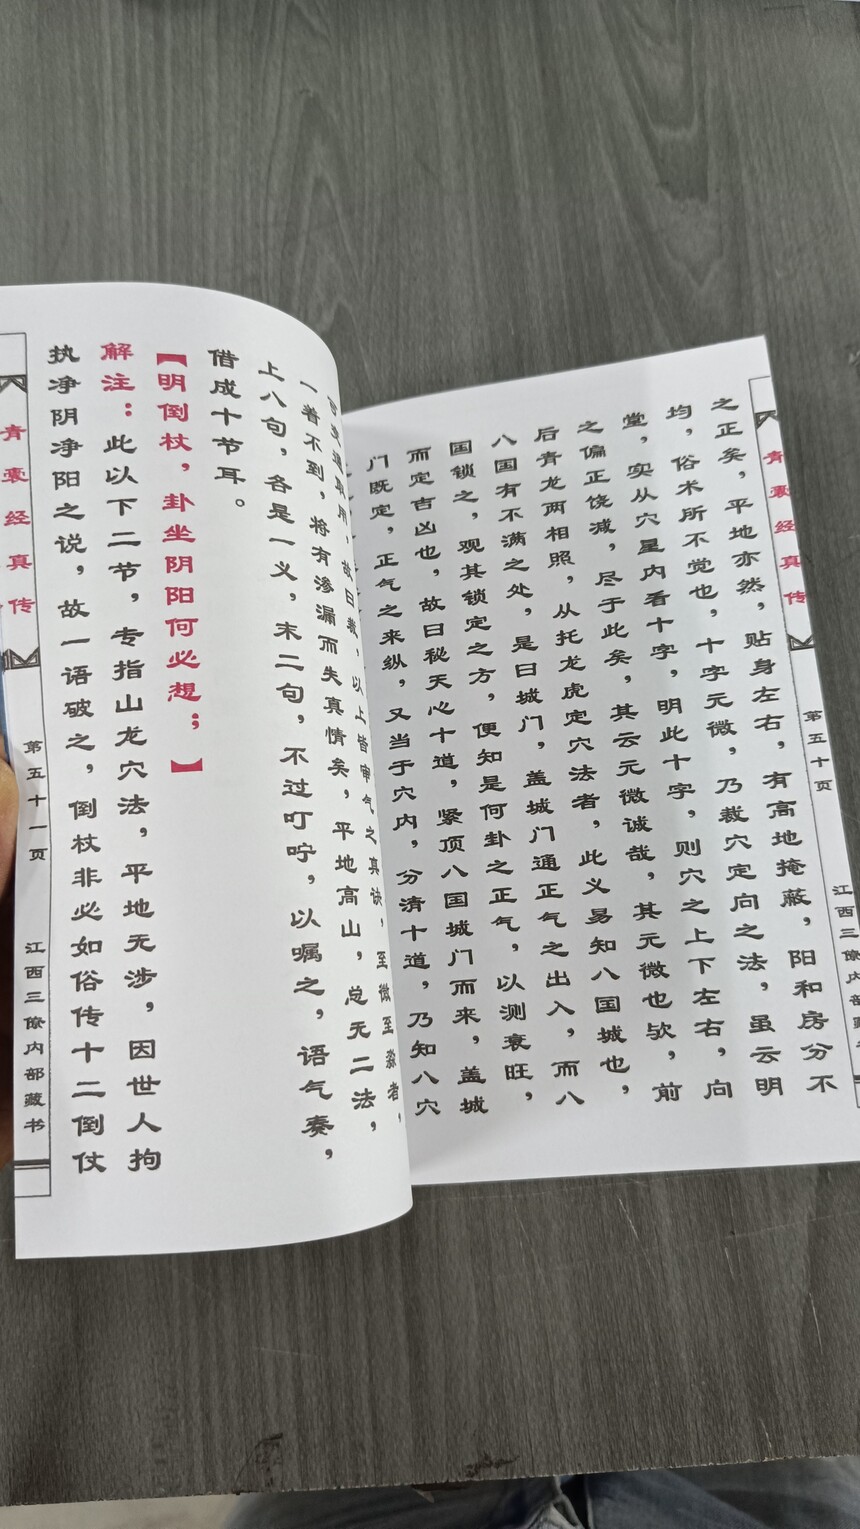 青囊经真传
第五十页
江西三僚内部藏书
之正矣，平地亦然，贴身左右，有高地掩蔽，阳和房分不
均，俗术所不觉也，十字元微，乃裁穴定向之法，虽云明
堂，实从穴星内看十字，明此十字，则穴之上下左右，向
之偏正饶减，尽于此矣，其云元微诚哉，其元微也欤，前
后青龙两相照，从托龙虎定穴法者，此义易知八国城也，
八国有不满之处，是曰城门，盖城门通正气之出入，而八
国锁之，观其锁定之方，便知是何卦之正气，以测衰旺，
而定吉凶也，故曰秘天心十道，紧顶八国城门而来，盖城
门既定，正气之来纵，又当于穴内，分清十道，乃知八穴
故曰裁，以上皆审气之真诀，至微至渺者，
一着不到，将有渗漏而失真情矣，平地高山，总无二法，
上八句，各是一义，末二句，不过叮咛，以嘱之，语气奏，
借成十节耳。
【明倒杖，卦坐阴阳何必想；】
解注：此以下二节，专指山龙穴法，平地无涉，因世人拘
执净阴净阳之说，故一语破之，倒杖非必如俗传十二倒仗
青囊经真传
第五十一页
江西三僚内部藏书